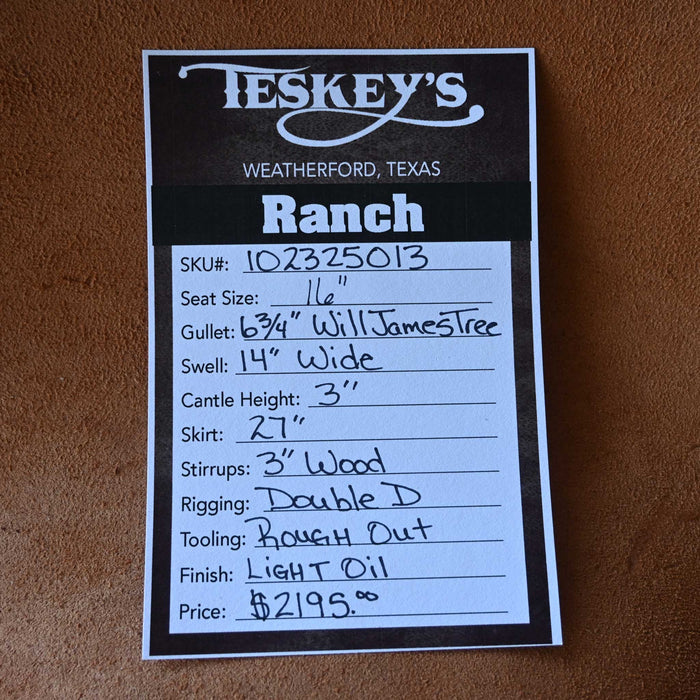 TESKEY'S
WEATHERFORD, TEXAS
Ranch
SKU#: 102325013
Seat Size: 16"
Gullet: 6 3/4" Will James Tree
Swell: 14" Wide
Cantle Height: 3"
Skirt: 27"
Stirrups: 3" Wood
Rigging: Double D
Tooling: Rough Out
Finish: Light Oil
Price: $2195.00